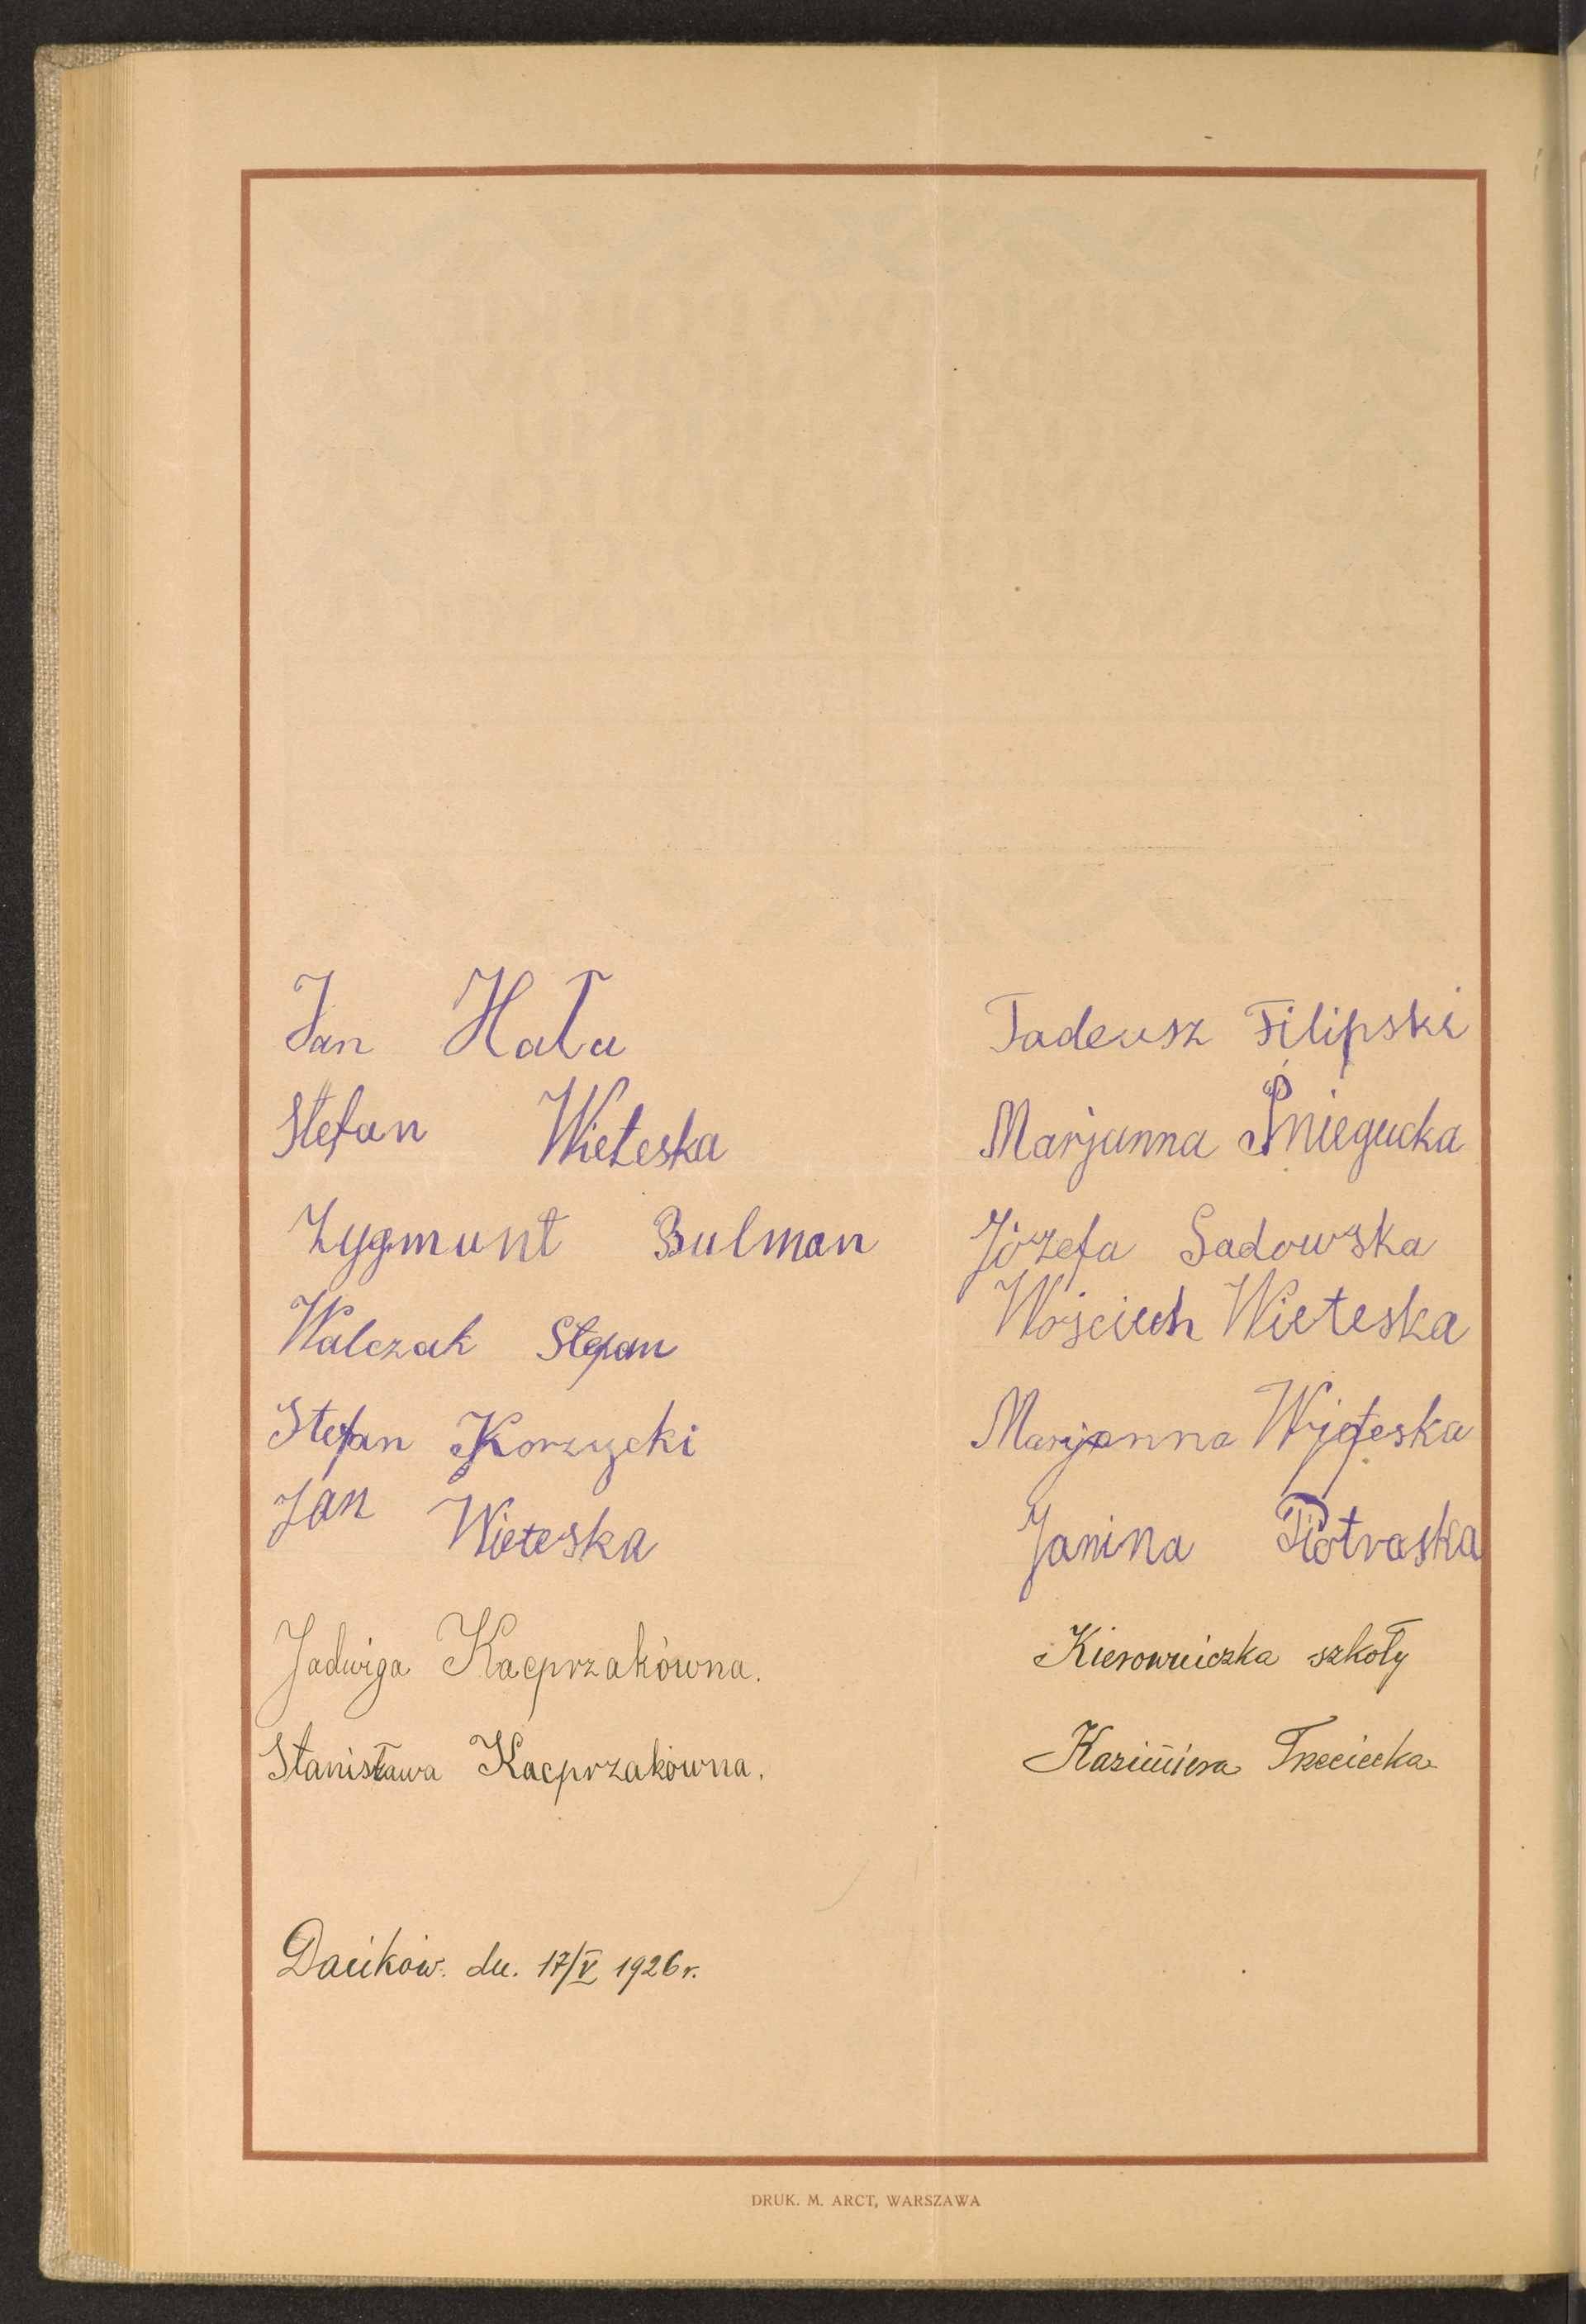 Jan Hała
Stefan Wieteska
Zygmunt Bulman
Walczak Stefan
Stefan Korzycki
Jan Wieteska
Jadwiga Kacprzakówna.
Stanisława Kacprzakówna.
Tadeusz Filipski
Marjanna Śniegucka
Józefa Sadowska
Wojciech Wieteska
Marjanna Wieteska
Janina Piotraska
Kierowniczka szkoły
Kazimiera Trzeciecka
Daików. dn. 17/V 1926 r.
DRUK. M. ARCT, WARSZAWA